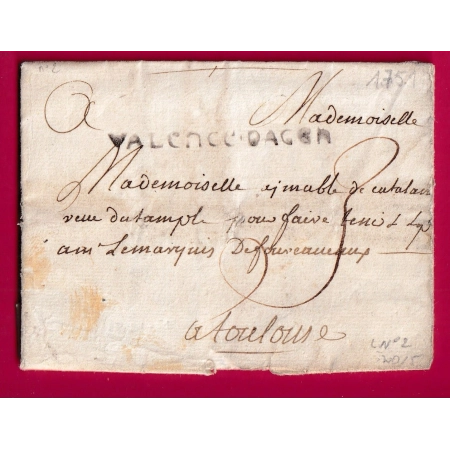 n°2
1751
a Mademoiselle
VALENCE·DAGEN
Mademoiselle ajmable de catalan
rue du tample pour faire tenir
a mr Lemarquis De foureauaux
a toulouse
LN°2